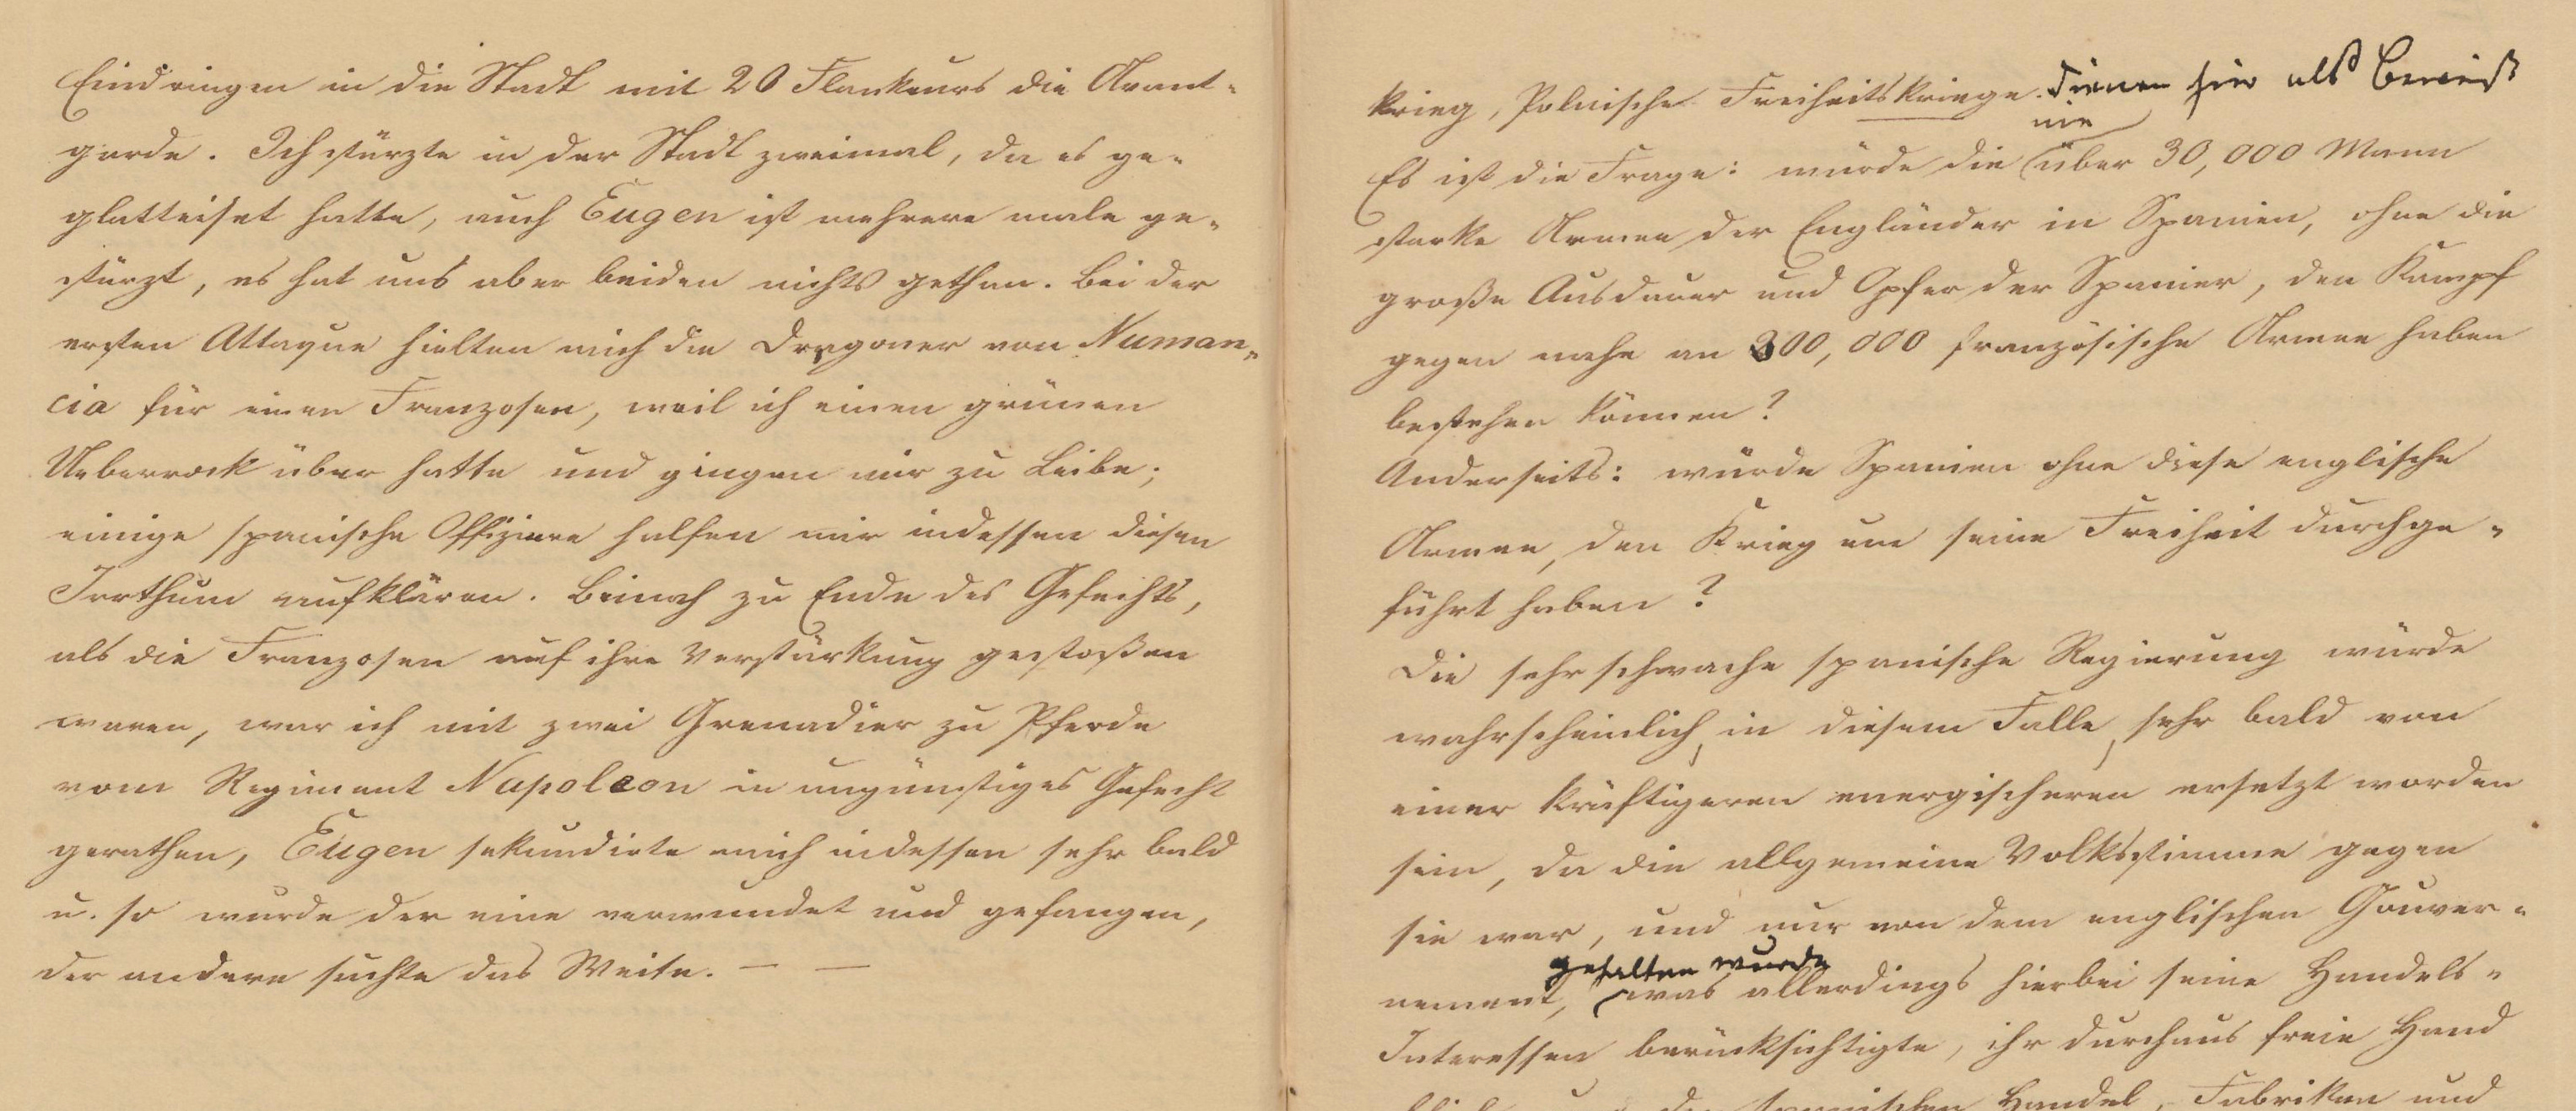 Eindringen in die Stadt mit 20 Flankeurs die Avant-
garde. Ich stürzte in der Stadt zweimal, da es ge-
glatteiset hatte, auch Eugen ist mehrere male ge-
stürzt, es hat uns aber beiden nichts gethan. Bei der
ersten Attaque hielten mich die Dragoner von Numan-
cia für einen Franzosen, weil ich einen grünen
Ueberrock über hatte und gingen mir zu Leibe;
einige spanische Offiziere halfen mir indessen diesen
Irrthum aufklären. Beinah zu Ende des Gefechts,
als die Franzosen auf ihre Verstärkung gestoßen
waren, war ich mit zwei Grenadier zu Pferde
vom Regiment Napoleon in ungünstiges Gefecht
gerathen, Eugen sekundirte mich indessen sehr bald
u. so wurde der eine verwundet und gefangen,
der andere suchte das Weite. — —
krieg, Polnische Freiheitskriege dienen hier als Beweis
nie
Es ist die Frage: würde die über 30,000 Mann
starke Armee der Engländer in Spanien, ohne die
große Ausdauer und Opfer der Spanier, den Kampf
gegen nahe an 300,000 französische Armee haben
bestehen können?
Anderseits: würde Spanien ohne diese englische
Armee, den Krieg um seine Freiheit durchge-
führt haben?
Die sehr schwache spanische Regierung würde
wahrscheinlich, in diesem Falle, sehr bald von
einer kräftigeren energischeren ersetzt worden
sein, da die allgemeine Volksstimme gegen
sie war, und nur von dem englischen Gouver-
gehalten wurde
nement, was allerdings hierbei seine Handels-
Interessen berücksichtigte, ihr durchaus freie Hand
spanischen Handel, Fabriken und